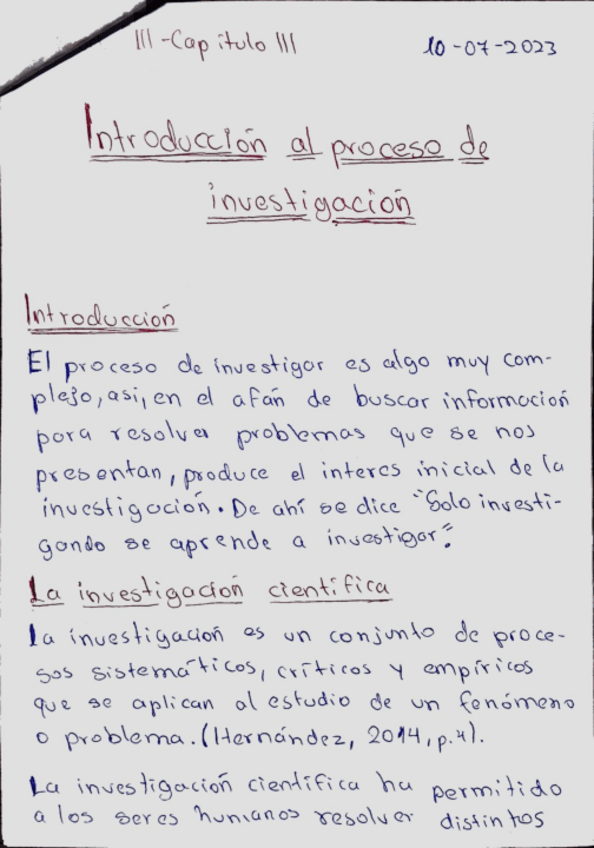 III - Capitulo III
10-07-2023
Introducción al proceso de
investigación
Introducción
El proceso de investigar es algo muy com-
plejo, asi, en el afán de buscar información
para resolver problemas que se nos
presentan, produce el interes inicial de la
investigación. De ahí se dice "Solo investi-
gando se aprende a investigar".
La investigación científica
La investigación es un conjunto de proce-
sos sistemáticos, críticos y empíricos
que se aplican al estudio de un fenómeno
o problema. (Hernández, 2014, p.4).
La investigación científica ha permitido
a los seres humanos resolver distintos